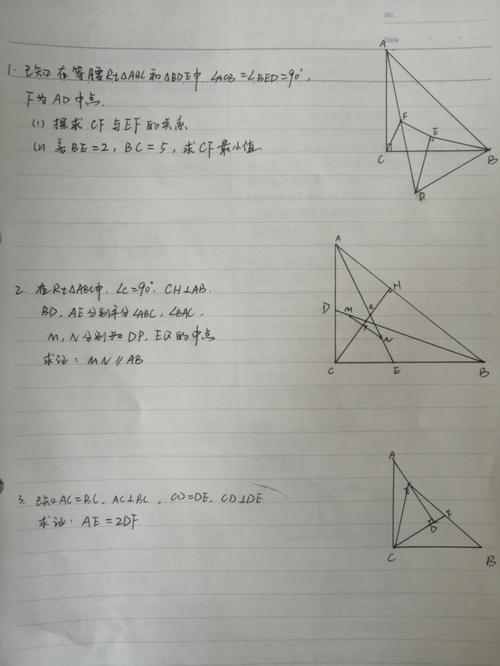 No.
Date
1. 已知在等腰Rt△ABC和△BDE中 ∠ACB=∠BED=90°,
F为AD中点.
(1) 探求CF与EF的关系
(2) 若BE=2, BC=5, 求CF最小值
A
F
E
C
B
D
2. 在Rt△ABC中, ∠C=90°. CH⊥AB.
BD, AE分别平分∠ABC, ∠BAC,
M, N分别为DP, EQ的中点
求证: MN∥AB
A
H
D
M
Q
P
N
C
E
B
3. 已知AC=BC, AC⊥BC, CD=DE, CD⊥DE
求证: AE=2DF
A
E
F
D
C
B